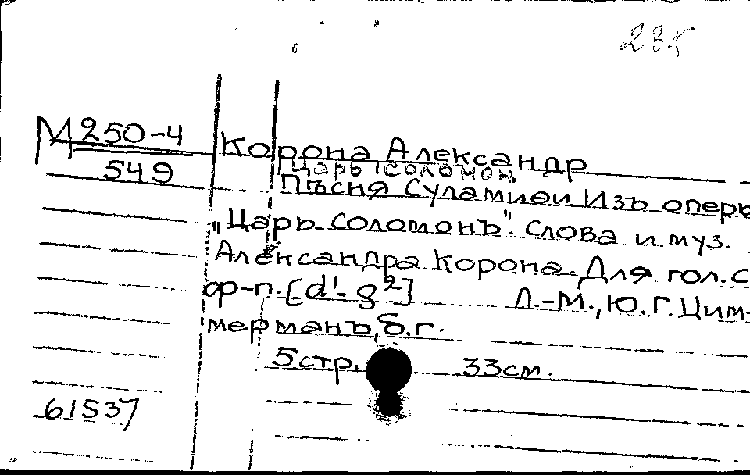 235
М 250-4
549
Корона Александр
[Царь Соломон]
Пѣсня Суламиѳи Изъ оперы
"Царь Соломонъ". Слова и муз.
Александра Корона. Для гол. с
ф-п. [d¹-g²] Л.-М., Ю.Г. Цим-
мерманъ, б.г.
5 стр. 33 см.
61537